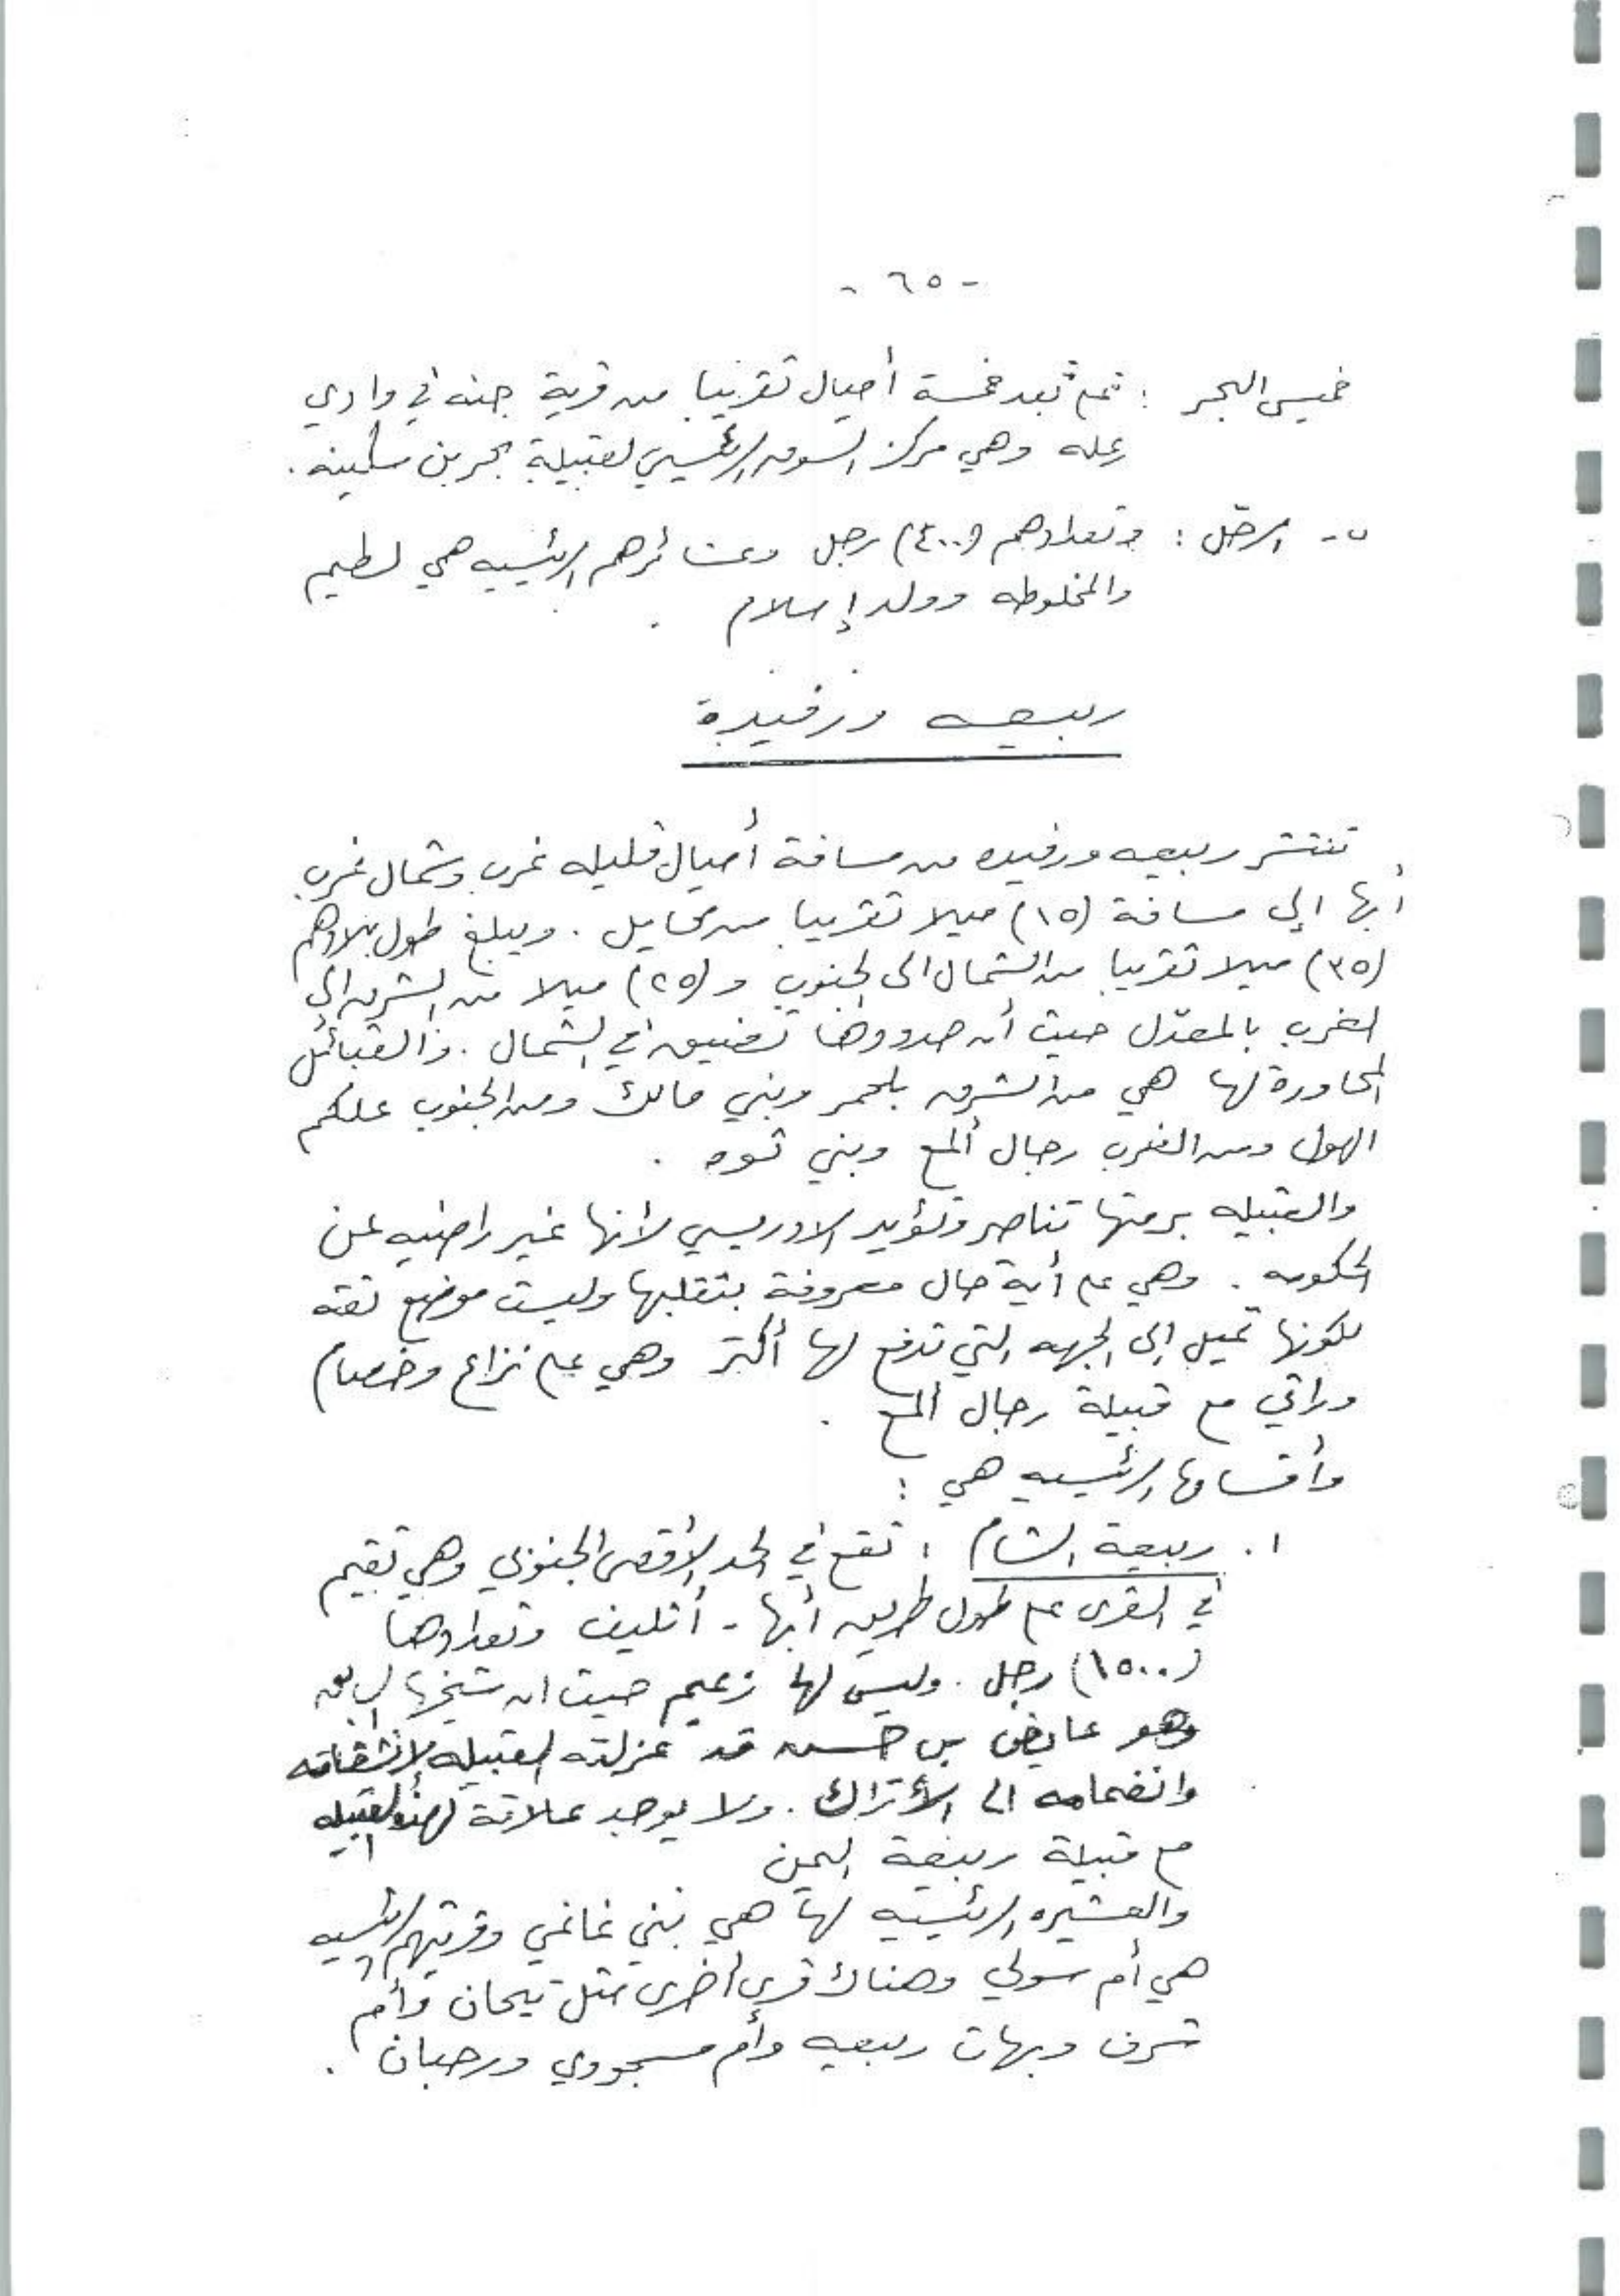 - ٦٥ -
خميس البحر : تقع على بعد خمسة أميال تقريبا من قرية جنه في وادي
عله وهي مركز السوق الرئيسي لقبيلة بحر بن سكينه .
ب - الرحّل : وتعدادهم (٤٠٠) رجل وعشائرهم الرئيسيه هي لطيم
والمخلوطه وولد إسلام .
ربيعه ورفيدة
تنتشر ربيعه ورفيده من مسافة أميال قليله غرب وشمال غرب
أبها إلى مسافة (١٥) ميلا تقريبا من محايل . ويبلغ طول بلادهم
(٣٥) ميلا تقريبا من الشمال الى الجنوب و (٢٥) ميلا من الشرق إلى
الغرب بالمعدّل حيث أن حدودها تضيق في الشمال . والقبائل
المجاورة لها هي من الشرق بلحمر وبني مالك ومن الجنوب علكم
الهول ومن الغرب رجال ألمع وبني ثوه .
والقبيله برمتها تناصر وتؤيد الادريسي لأنها غير راضيه عن
الحكومه . وهي على أية حال معروفة بتقلبها وليست موضع ثقه
لكونها تميل إلى الجهه التي تدفع لها أكثر وهي على نزاع وخصام
وراثي مع قبيلة رجال ألمع .
وأقسامها الرئيسيه هي :
١. ربيعة الشام : تقع في الحد الأقصى الجنوبي وهي تقيم
في القرى على طول طريق أبها - أتليف وتعدادها
(١٥٠٠) رجل . وليس لها زعيم حيث ان شيخها السابق
وهو عايض بن حسن قد عزلته القبيله لإنشقاقه
وانضمامه الى الأتراك . ولا يوجد علاقة لهذه القبيله
مع قبيلة ربيعة اليمن
والعشيره الرئيسيه لها هي بني غانمي وقريتهم الرئيسيه
هي أم سولي وهناك قرى أخرى مثل تيحان وأم
شرف وبهات ربيعه وأم مسجودي ورحبان .